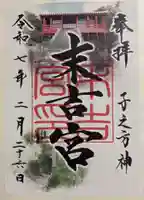 奉拝
子之方神
末吉宮
令和七年二月二十六日